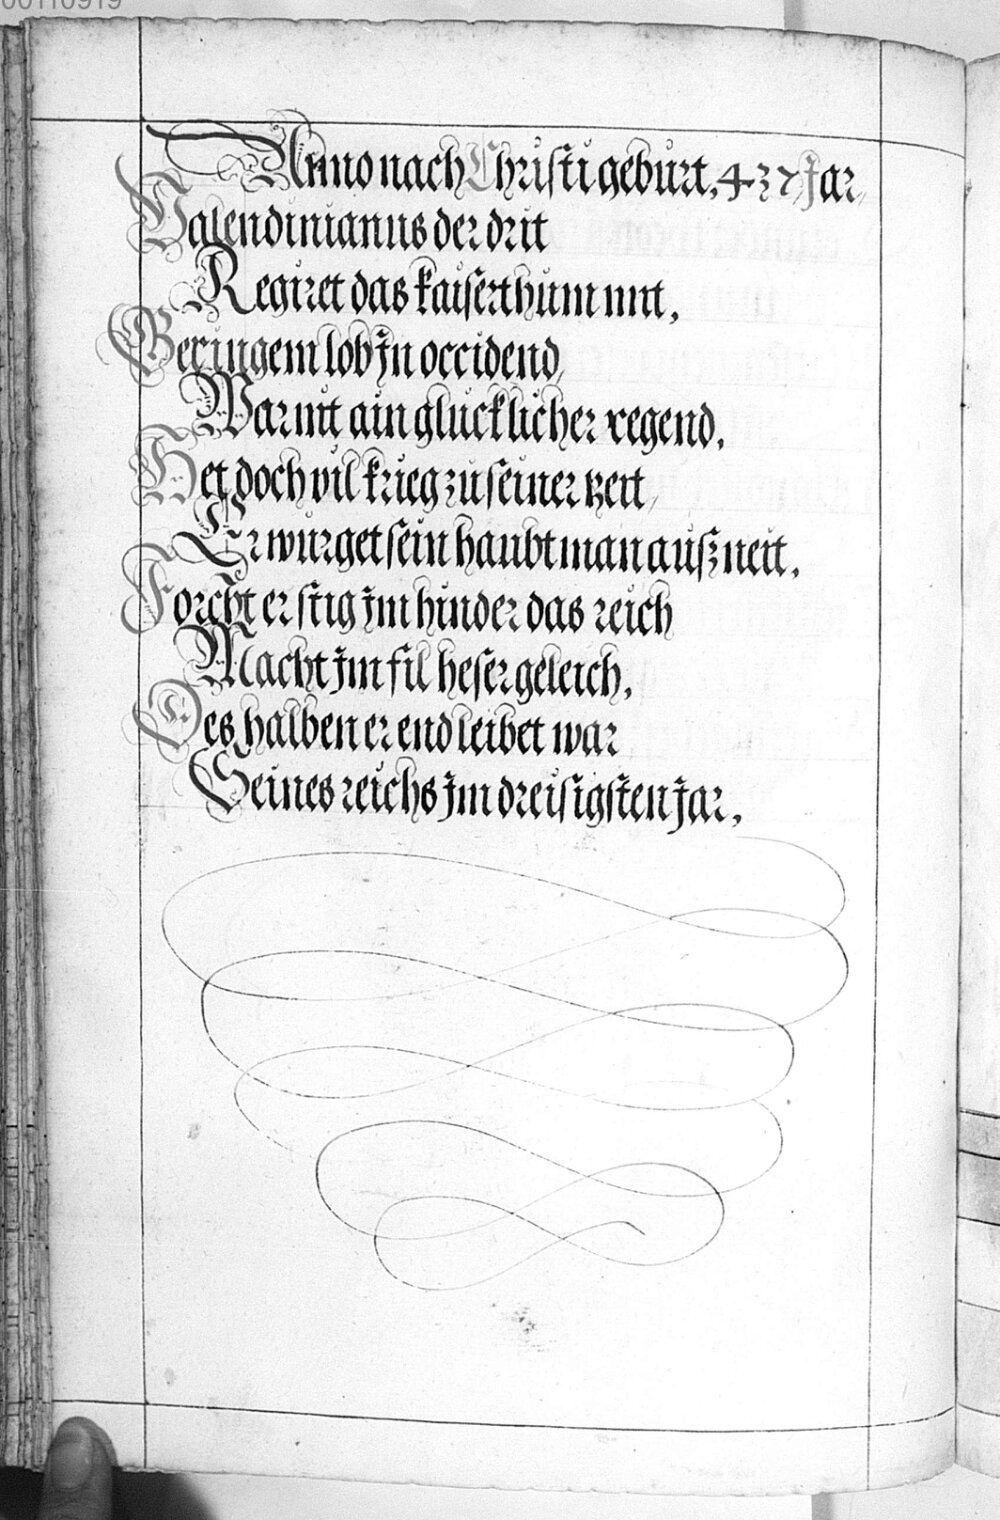 00110919
Anno nach Christi geburt, 437 Jar,
Valendinianus der drit
Regiret das kaiserthum mit,
Geringem lob Jn occident,
War nit ain glucklicher regend,
Het doch vil krieg zu seiner tzeit,
Er wurget sein haubtman ausz neit,
Forcht er stig Jm hinder das reich
Macht Jm fil heser geleich,
Des halben er endleibet war
Seines reichs Jm dreisigsten Jar,